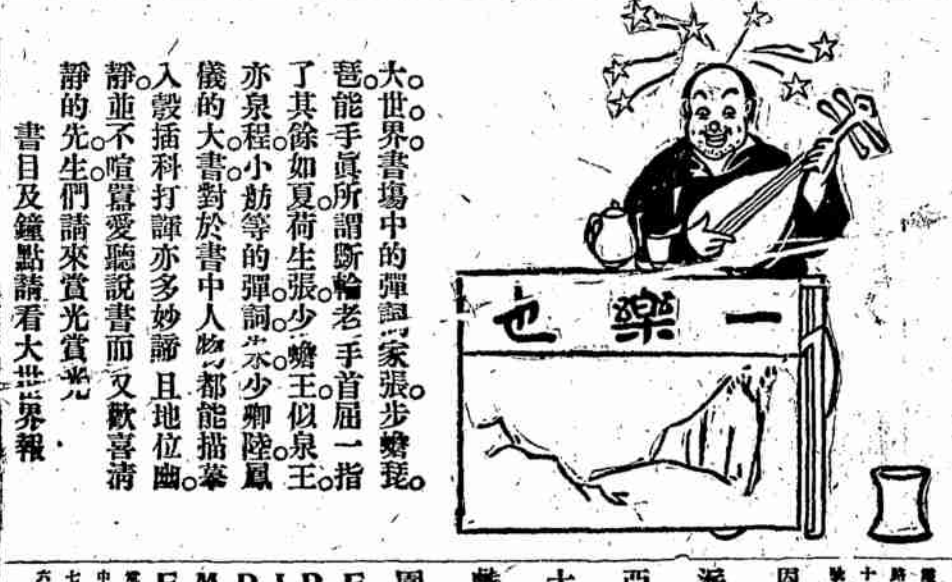 一樂也
大世界書塲中的彈詞家張步蟾琵
琶能手眞所謂斷輪老手首屈一指
了其餘如夏荷生張少蟾王似泉王
亦泉程小舫等的彈詞朱少卿陸鳳
儀的大書對於書中人物都能描摹
入彀插科打諢亦多妙諦且地位幽
靜並不喧囂愛聽說書而又歡喜清
靜的先生們請來賞光賞光
書目及鐘點請看大世界報